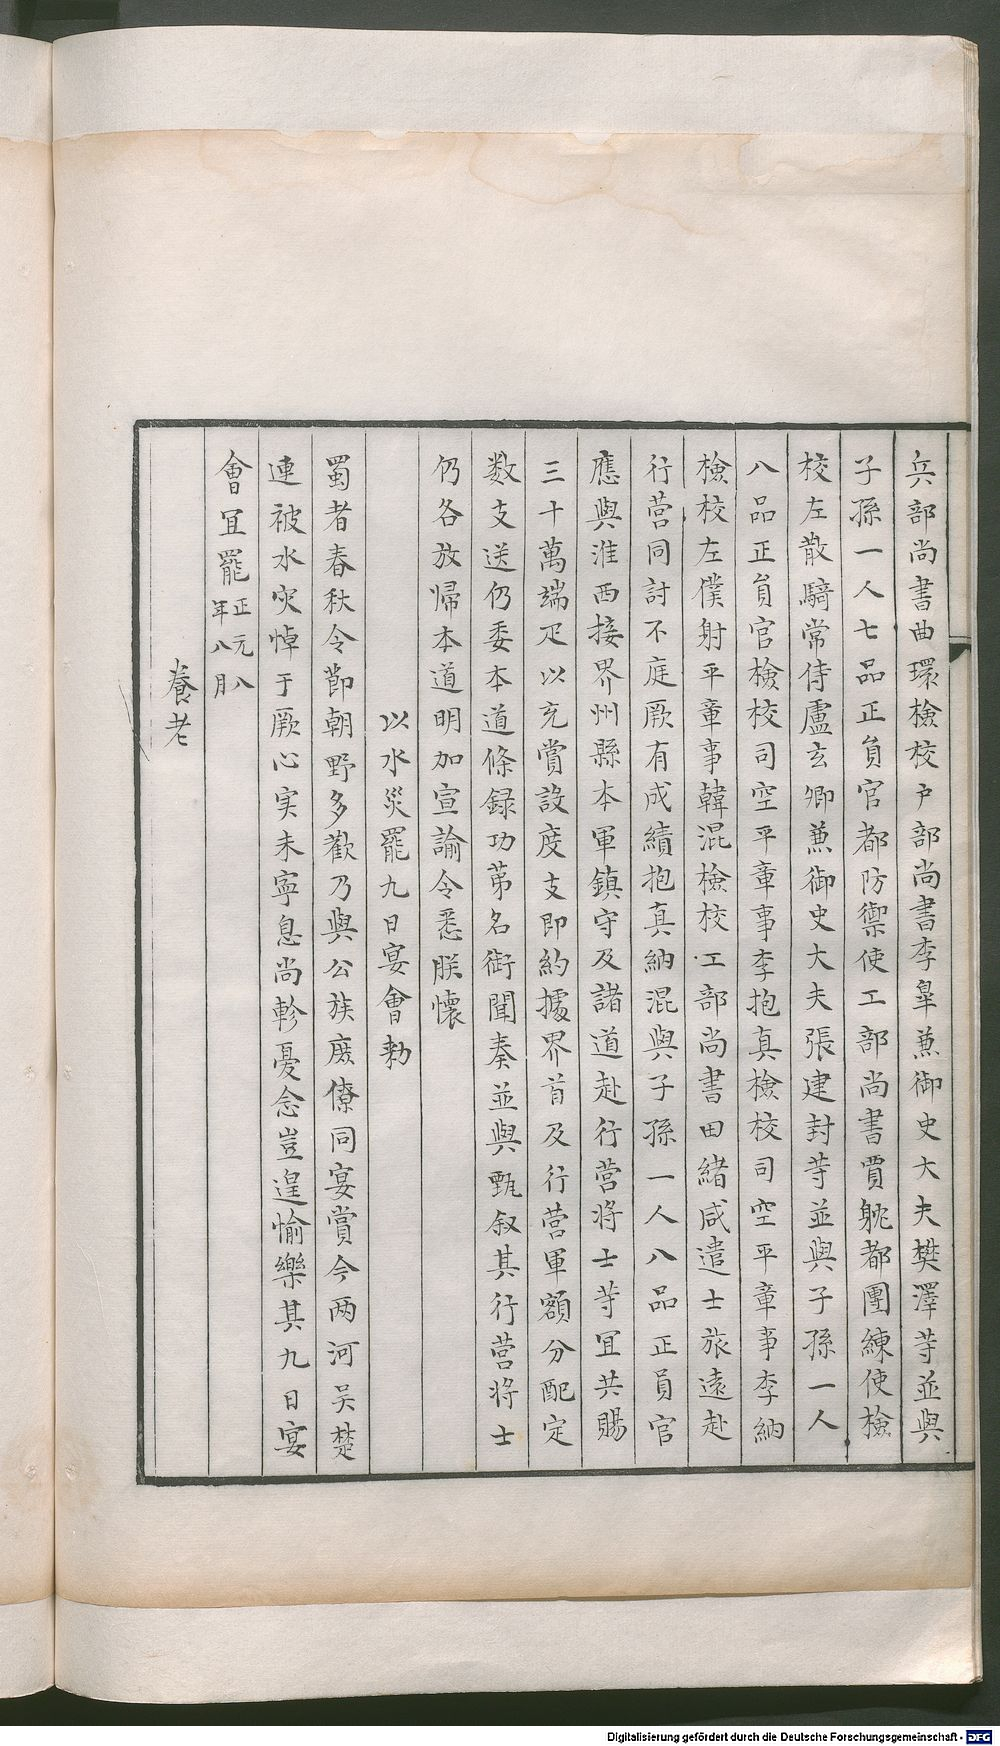 兵部尚書曲環檢校户部尚書李皐兼御史大夫樊澤等並與
子孫一人七品正負官都防禦使工部尚書賈躭都團練使檢
校左散騎常侍盧玄卿兼御史大夫張建封等並與子孫一人
八品正負官檢校司空平章事李抱真檢校司空平章事李納
檢校左僕射平章事韓混檢校工部尚書田緒咸遣士旅遠赴
行营同討不庭厥有成績抱真納混與子孫一人八品正員官
應與淮西接界州縣本軍鎮守及諸道赴行营將士等宜共賜
三十萬端疋以充賞設度支即約據界首及行营軍額分配定
数支送仍委本道條録功第名銜聞奏並與甄叙其行营將士
仍各放歸本道明加宣諭令悉朕懷
以水災罷九日宴會勑
蜀者春秋令節朝野多歡乃與公族庻僚同宴賞今两河吴楚
連被水灾悼于厥心实未寧息尚軫憂念豈遑愉樂其九日宴
會宜罷 正元八年八月
養老
Digitalisierung gefördert durch die Deutsche Forschungsgemeinschaft - DFG